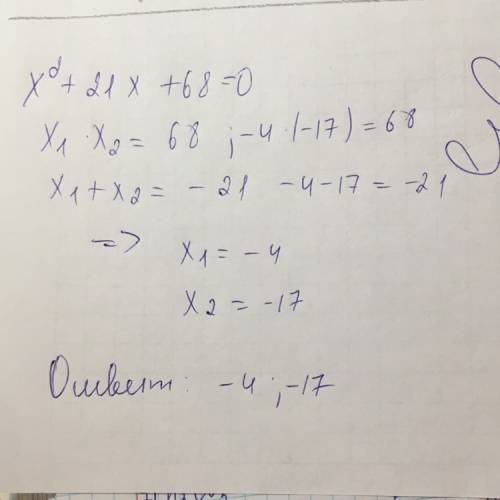 x² + 21x + 68 = 0
x₁ · x₂ = 68 ; -4 · (-17) = 68
x₁ + x₂ = - 21 -4 - 17 = -21
=> x₁ = - 4
x₂ = -17
Ответ: -4 ; -17